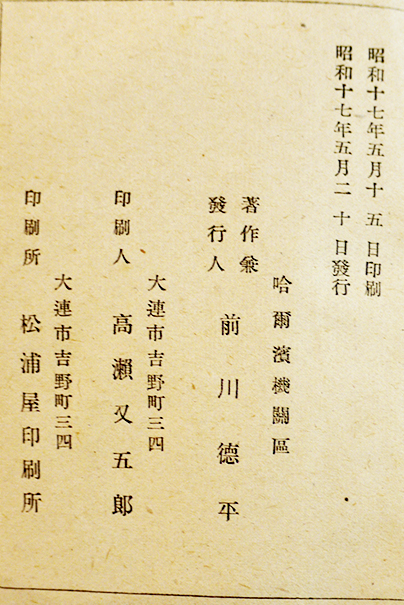 昭和十七年五月十五日印刷
昭和十七年五月二十日發行
哈爾濱機關區
著作兼
發行人 前川德平
大連市吉野町三四
印刷人 高瀨又五郎
大連市吉野町三四
印刷所 松浦屋印刷所